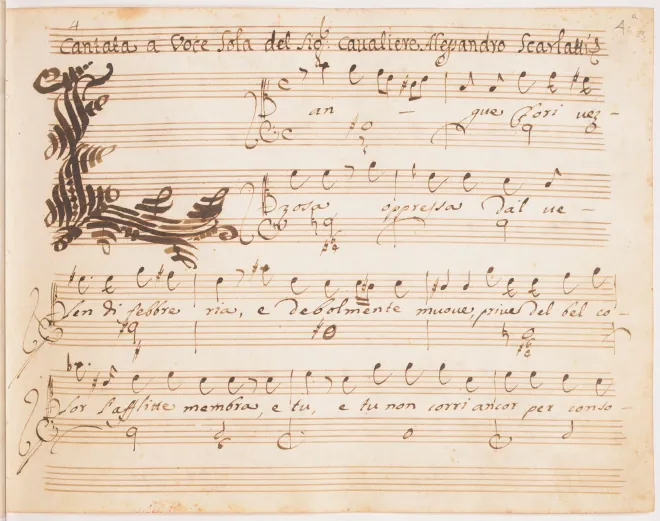 4 4
Cantata a Voce Sola del Sig.r Cavaliere Alessandro Scarlatti
L an - gue Clori vez -
zosa oppressa dal ve -
len di febbre ria, e debolmente muove, prive del bel co -
lor l'afflitte membra, e tu, e tu non corri ancor per conso -